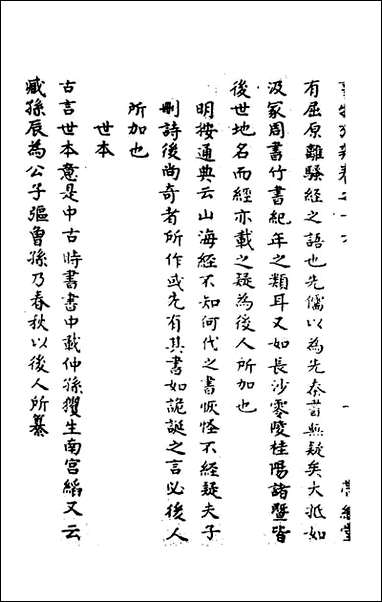 有屈原離騷經之語也先儒以為先秦書無疑矣大抵如
汲冢周書竹書紀年之類耳又如長沙零陵桂陽諸暨皆
後世地名而經亦載之疑為後人所加也
明按通典云山海經不知何代之書恢怪不經疑夫子
刪詩後尚奇者所作或先有其書如詭誕之言必後人
所加也
世本
古言世本意是中古時書書中載仲孫玃生南宮縚又云
臧孫辰為公子彄曾孫乃春秋以後人所纂